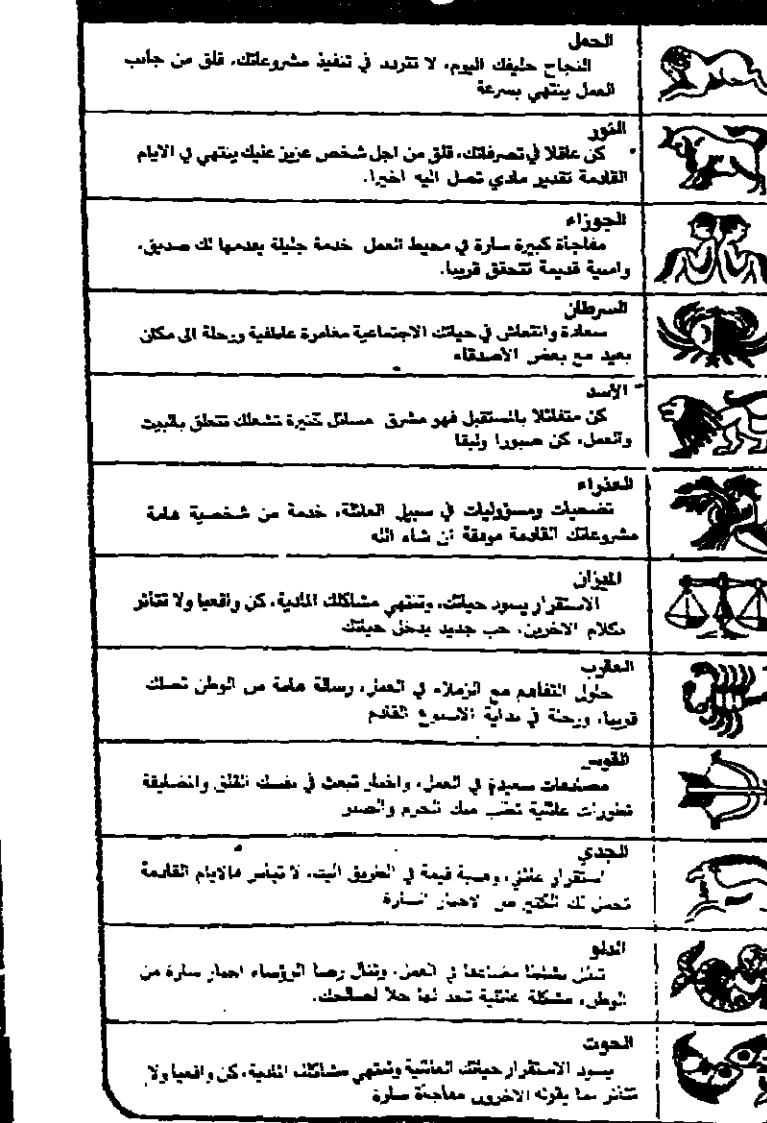 الحمل
النجاح حليفك اليوم، لا تتردد في تنفيذ مشروعاتك، قلق من جانب
العمل ينتهي بسرعة
الثور
كن عاقلا في تصرفاتك، قلق من اجل شخص عزيز عليك ينتهي في الايام
القادمة تقدير مادي تصل اليه اخيرا.
الجوزاء
مفاجأة كبيرة سارة في محيط العمل خدمة جليلة يقدمها لك صديق،
وامنية قديمة تتحقق قريبا.
السرطان
سعادة وانتعاش في حياتك الاجتماعية مغامرة عاطفية ورحلة الى مكان
بعيد مع بعض الأصدقاء
الأسد
كن متفائلا بالمستقبل فهو مشرق مسائل كثيرة تشغلك تتعلق بالبيت
والعمل، كن صبورا ولبقا
العذراء
تضحيات ومسؤوليات في سبيل العائلة، خدمة من شخصية هامة
مشروعاتك القادمة موفقة ان شاء الله
الميزان
الاستقرار يسود حياتك، وتنتهي مشاكلك المادية، كن واقعيا ولا تتأثر
بكلام الاخرين، حب جديد يدخل حياتك
العقرب
حاول التفاهم مع الزملاء في العمل، رسالة هامة من الوطن تصلك
قريبا، ورحلة في بداية الاسبوع القادم
القوس
سعيدة في العمل، واخبار تبعث في نفسك القلق والضايقة
تطورات عائلية تتطلب منك الحزم والصبر
الجدي
استقرار عائلي، وهبة قيمة في الطريق اليك، لا تيأس فالايام القادمة
تحمل لك الكثير من الاخبار السارة
الدلو
تظل نشيطا في العمل، وتنال رضا الرؤساء اخبار سارة من
الوطن، مشكلة عائلية تجد لها حلا لصالحك.
الحوت
يسود الاستقرار حياتك العائلية وتنتهي مشاكلك المادية، كن واقعيا ولا
تتأثر بما يقوله الاخرون مفاجأة سارة